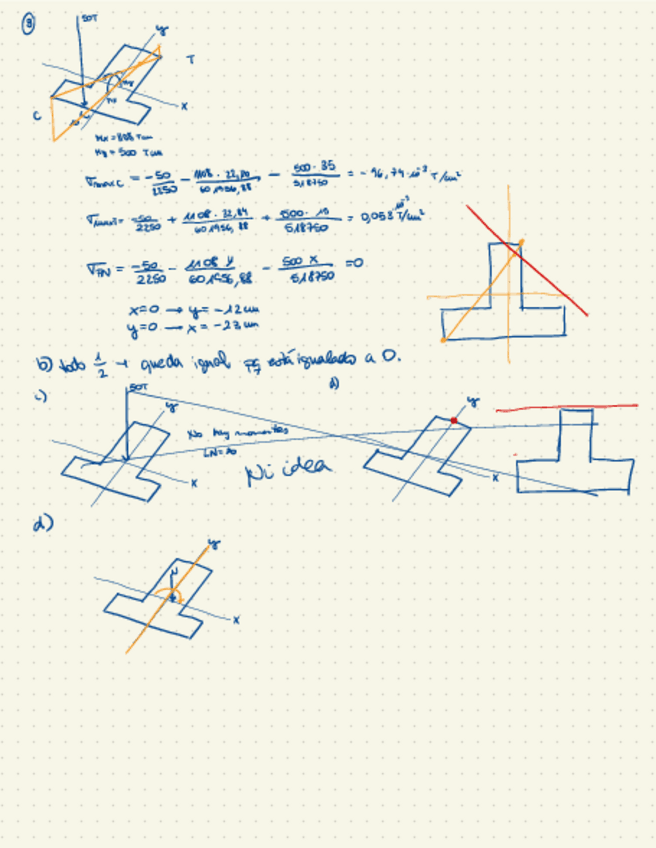 ③
50T
y
T
x
C
My = 500 Tcm
σmax C = -50/2250 - 1108 · 22,84/601956,88 - 500 · 35/518750 = -96,74·10⁻³ T/cm²
σmax T = -50/2250 + 1108 · 32,84/601956,88 + 500 · 10/518750 = 0,053 T/cm²
σFN = -50/2250 - 1108 y/601956,88 - 500 x/518750 = 0
x=0 → y = -12 cm
y=0 → x = -23 cm
b) todo 1/2 → queda igual está igualado a 0.
c)
d)
50T
y
No hay momentos
LN = ∞
x
Ni idea
y
x
d)
y
N
x